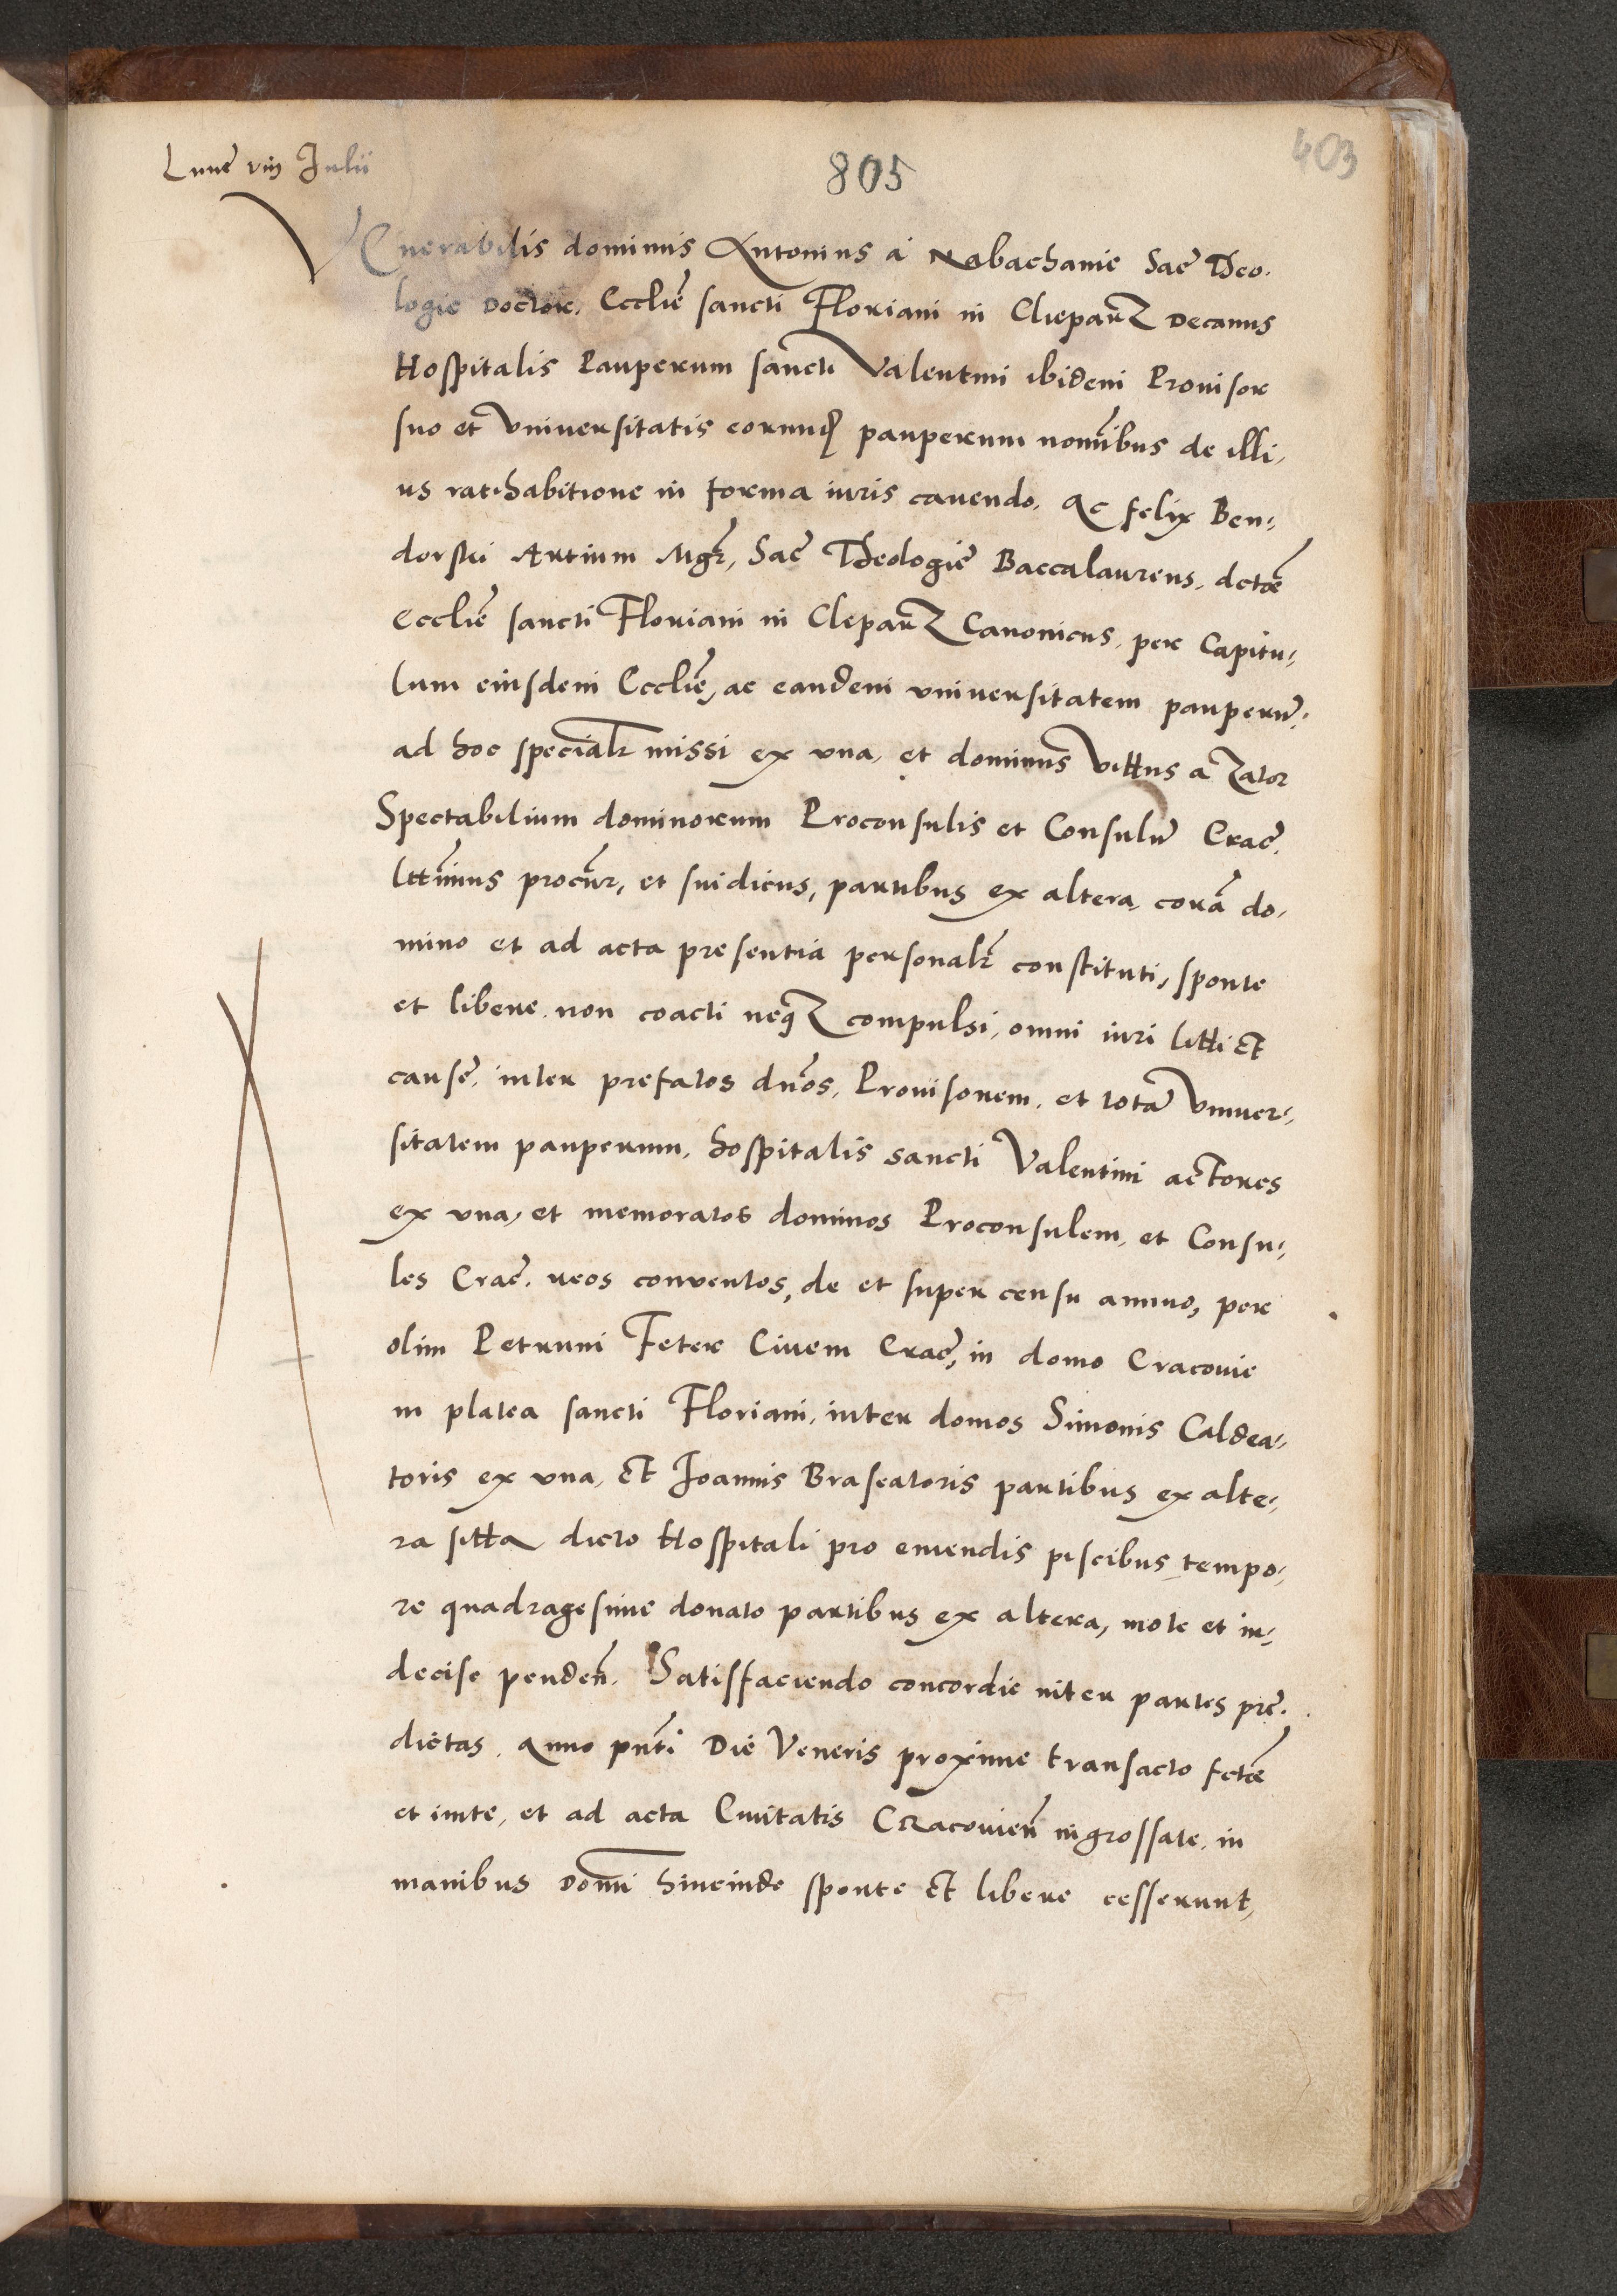 Lune viij Julii
805
403
VEnerabilis dominus Antonius a Nabachanie Sac̄ Theo-
logie Doctor, Ecclie̅ sancti Floriani in Cleparz Decanus
Hospitalis Pauperum sancti Valentini ibidem Prouisor
suo et Vniuersitatis eorund pauperum nomībus de illi,
us ratihabitione in forma iuris cauendo. Ac felix Ben,
dorski Artium Mgr̄, Sac̄ Theologie Baccalaureus, dctæ
Ecclie̅ sancti Floriani in Cleparz Canonicus, per Capitu,
lum eiusdem Ecclie̅, ac eandem vniuersitatem pauperū,
ad hoc specialr̄ missi ex vna, et dominus Vittus a Zator
Spectabilium dominorum Proconsulis et Consulū Crac̄.
lttīmus procūr, et sindicus, partibus ex altera, corā do,
mino et ad acta presentia personalr̄ constituti, sponte
et libere non coacti neqz compulsi, omni iuri litti et
cause, inter prefatos dnōs, Prouisorem, et totā Vniuer,
sitatem pauperum, hospitalis sancti Valentini actores
ex vna, et memoratos dominos Proconsulem, et Consu,
les Crac̄. reos conuentos, de et super censu annuo, per
olim Petrum Feter Ciuem Crac̄, in domo Cracouie
in platea sancti Floriani, inter domos Simonis Caldea,
toris ex vna, et Joannis Braseatoris partibus ex alte,
ra sitta dicto Hospitali pro emendis piscibus tempo,
re quadragesime donato partibus ex altera, mote et in,
decise penden̄. Satisfaciendo concordie inter partes pre,
dictas, Anno pn̄ti Die Veneris proxime transacto fctæ
et inite, et ad acta Ciuitatis Cracouien̄ ingrossate, in
manibus Domī hincinde sponte et libere cesserunt,